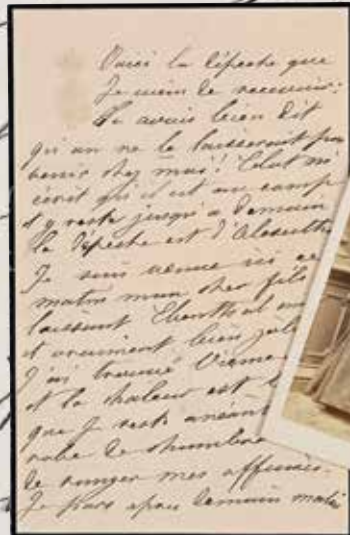 Voici la dépeche que
Je viens de recevoir:
Je avais bien dit
qu'on ne le laisserait pas
venir chez moi! Calut m'
écrit qu'il est au camp
et y reste jusqu'a demain
la dépeche est d'
Je suis venue ici ce
matin mon cher fils
laissant
et vraiment bien joli
J'ai trouvé Vienne
et la chaleur est
que je reste anéant
robe de chambre
de ranger mes affaires.
Je pars apres demain matin